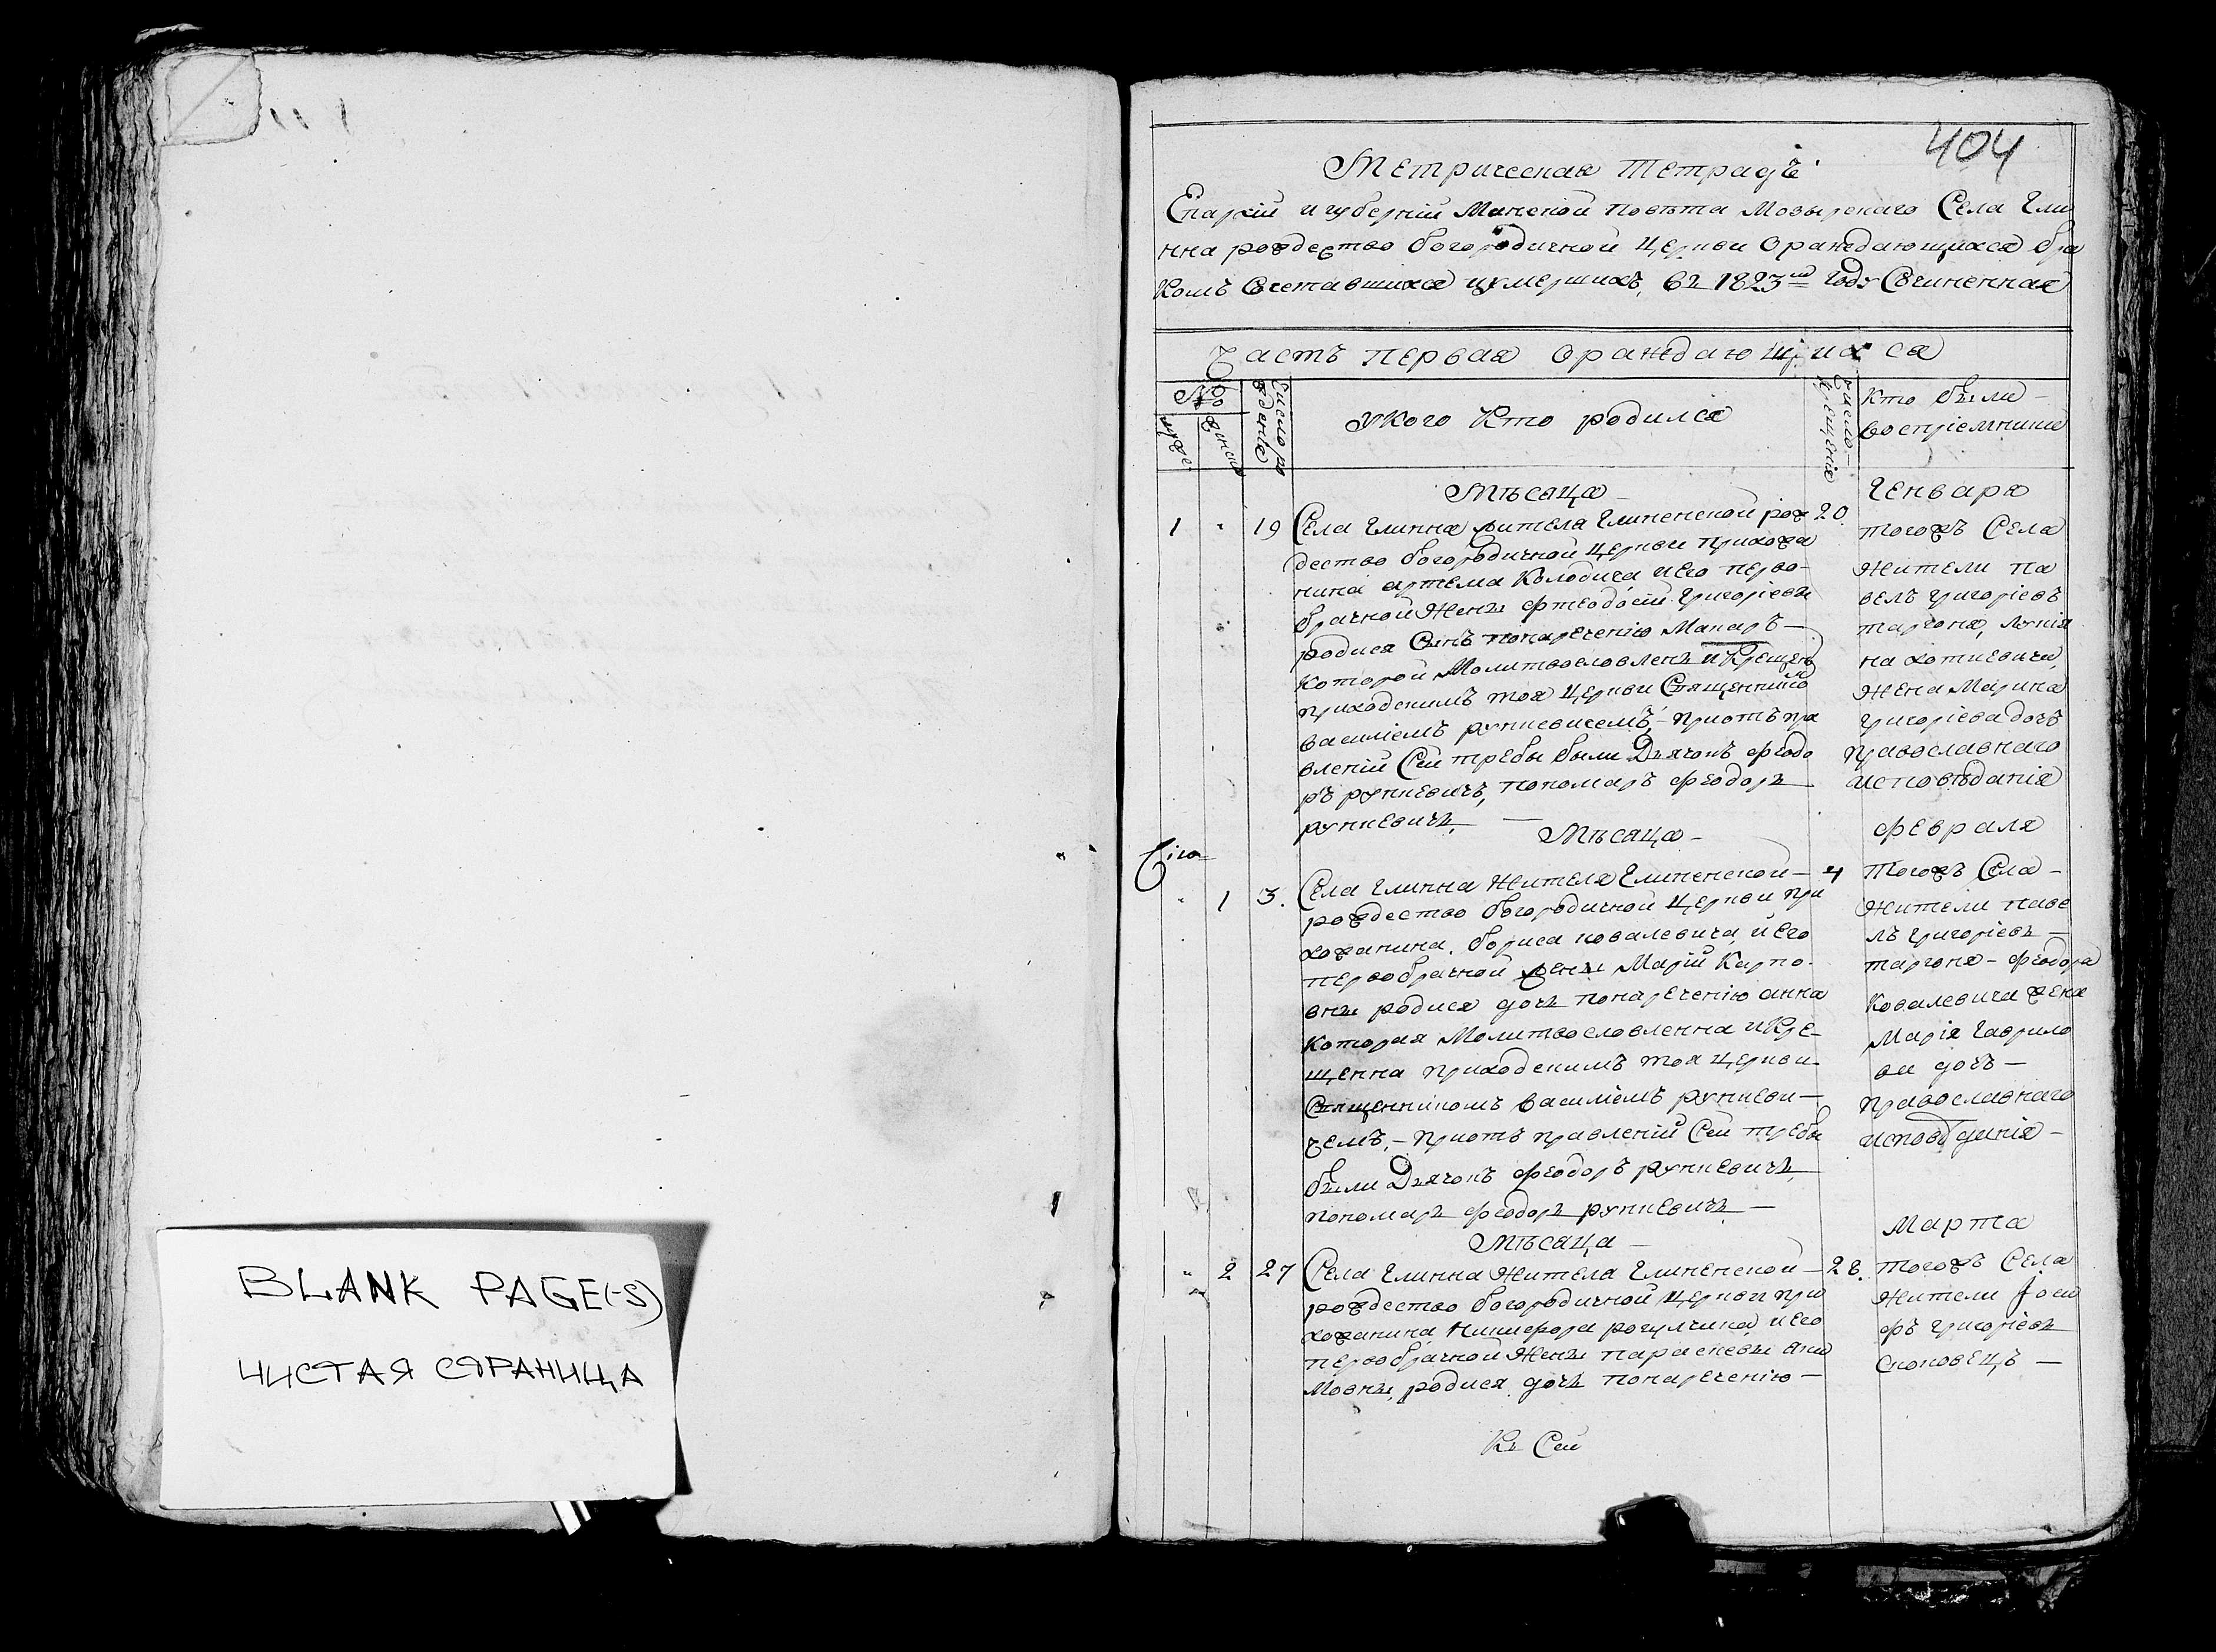 BLANK PAGE(-S)
ЧИСТАЯ СТРАНИЦА
404
Метрическая тетрадъ
Епархіи и губерніи Минской повѣта Мозырскаго Села Гли
нна рождество богородичной церкви оражdающихся бра
комъ Сочетавшихся иумершихъ, въ 1823м году Сочиненная
Часть первая ораждающихся
№
муже
женск
Число ро
жденіе
Укого Кто родился
Число
крещенія
Кто были
воспріемники
Мѣсяца
Генваря
1 " 19 Села Глинна жителя Глиненской рож 20.
дество богородичной церкви прихожа
нина артема Колодича, и его перво-
брачной Жены Фтеодосіи Григоріевы
родися Сынъ понареченію Макаръ
Которой Молитвословленъ и Крещенъ
приходскимъ тоя церкви Священник
василіемъ рункевичемъ, - приотъпра
вленіи Сеи требы были Дьячокъ Феодо
ръ рункевичъ, пономаръ Феодоръ
рункевичъ,
тогожъ Села
Жители па
велъ григоріевъ
таргоня, лукія
на хоткевича,
Жена Марина
григоріева дочъ
православнаго
исповѣданія
Мѣсяца
Февраля
" 1 3. Села Глинна Жителя Глиненской 4
рождество богородичной церкви при
хожанина, бориса ковалевича, и его
первобрачной жены Маріи Карпо-
вны родися дочъ понареченію анна
Которая Молитвословленна и Кре-
щенна приходскимъ тоя церкви
Священникомъ василіемъ рункеви
чемъ, - приотъ правленіи Сеи требы
были Дьячокъ Феодоръ рункевичъ,
пономаръ Феодоръ рункевичъ
тогожъ Села
Жители паве
лъ григоріевъ
таргоня - Феодора
Ковалевича жена
Марія Гаврило
ва дочъ
православнаго
исповѣданія
Мѣсяца
Марта
" 2 27 Села Глинна Жителя Глиненской 28.
рождество богородичной церкви при
хожанина Никифора рогулчика, и его
первобрачной Жены параскевы яки
мовны, родися дочъ понареченію
тогожъ Села
Жители Іоси
фъ григоріевъ
Скоковецъ
Къ Сей